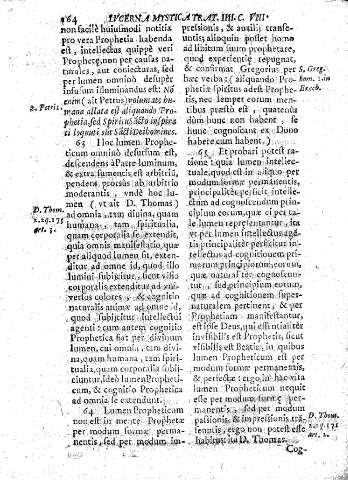 164 LVCERNA MYSTICA TRAT. IIII. C. VIII.
non facilè huiusmodi notitia
vera Prophetia habenda
est, intellectus quippè veri
Prophetę, non per causas na-
turales, aut coniecturas, sed
per lumen omninò desuper
infusum illuminandus est: Nō
enim (ait Petrus) volūtate hu-
mana allata est aliquando Pro-
phetia, sed Spiritu Sācto inspira
ti loquuti sūt Sācti Dei homines.
2. Petri.
63 Hoc lumen Prophe-
ticum omninò desursum est,
descendens à Patre luminum,
& extra sumencis est arbitriū,
pendens prorsus ab arbitrio
moderantis, vndè hoc lu-
men (vt ait D. Thomas)
ad omnia, tam diuina, quam
humana, tam spiritualia,
quam corporalia se extendit,
quia omnis manifestatio, quæ
per aliquod lumen fit, exten-
ditur ad omne id, quod illo
lumini subijcitur, sicut visio
corporalis extenditur ad vni-
versos colores, & cognitio
naturalis animæ ad omne id,
quod subijcitur intellectui
agenti: cum autem cognitio
Prophetica fiat per divinum
lumen, cui omnia, tam divi-
na, quam humana, tam spiri-
tualia, quam corporalia subij-
ciuntur, ideò lumen Propheti-
cum, & cognitio Prophetica
ad omnia se extendunt.
D. Thom.
2. 2. q. 171
art. 3.
64 Lumen Propheticum
non est in mente Prophetæ
per modum formæ perma-
nentis, sed per modum im-
pressionis, & auxilij transe-
untis; alioquin posset homo
ad libitum suum prophetare,
quod experientiæ repugnat,
& confirmat Gregorius per
hæc verba: (aliquando) Pro-
phetiæ spiritus adest Prophe-
tis, nec semper eorum men-
tibus præsto est, quatenus
dùm hunc non habent, se
hunc cognoscant ex Dono
habere cum habent.)
S. Greg.
hom. 1. in
Ezech.
65 Et probari potest ra-
tione: quia lumen intellec-
tuale, quod est in aliquo per
modum formæ permanentis,
principaliter perficit intellec-
tum ad cognoscendum prin-
cipium eorum, quæ ei per ta-
le lumen repræsentantur, sic
vt per lumen intellectus agē-
tis principaliter perficitur in-
tellectus ad cognitionem pri-
marum principiorum, eorum,
quæ naturaliter cognoscun-
tur, sed principium eorum,
quæ ad cognitionem super-
naturalem pertinent, & per
Prophetiam manifestantur,
est ipse Deus, qui essentialitèr
invisibilis est Prophetis, sicut
visibilis est Beatis, in quibus
lumen Propheticum est per
modum formæ permanentis,
& perfectæ: ergo in hac vita
lumen Propheticum nequit
esse per modum formæ per-
manentis, sed per modum
passionis, & impressionis trā-
seuntis, ergo non potest esse
habitus: ita D. Thomas.
D. Thom.
2. 2. q. 171
art. 2.
Cog-